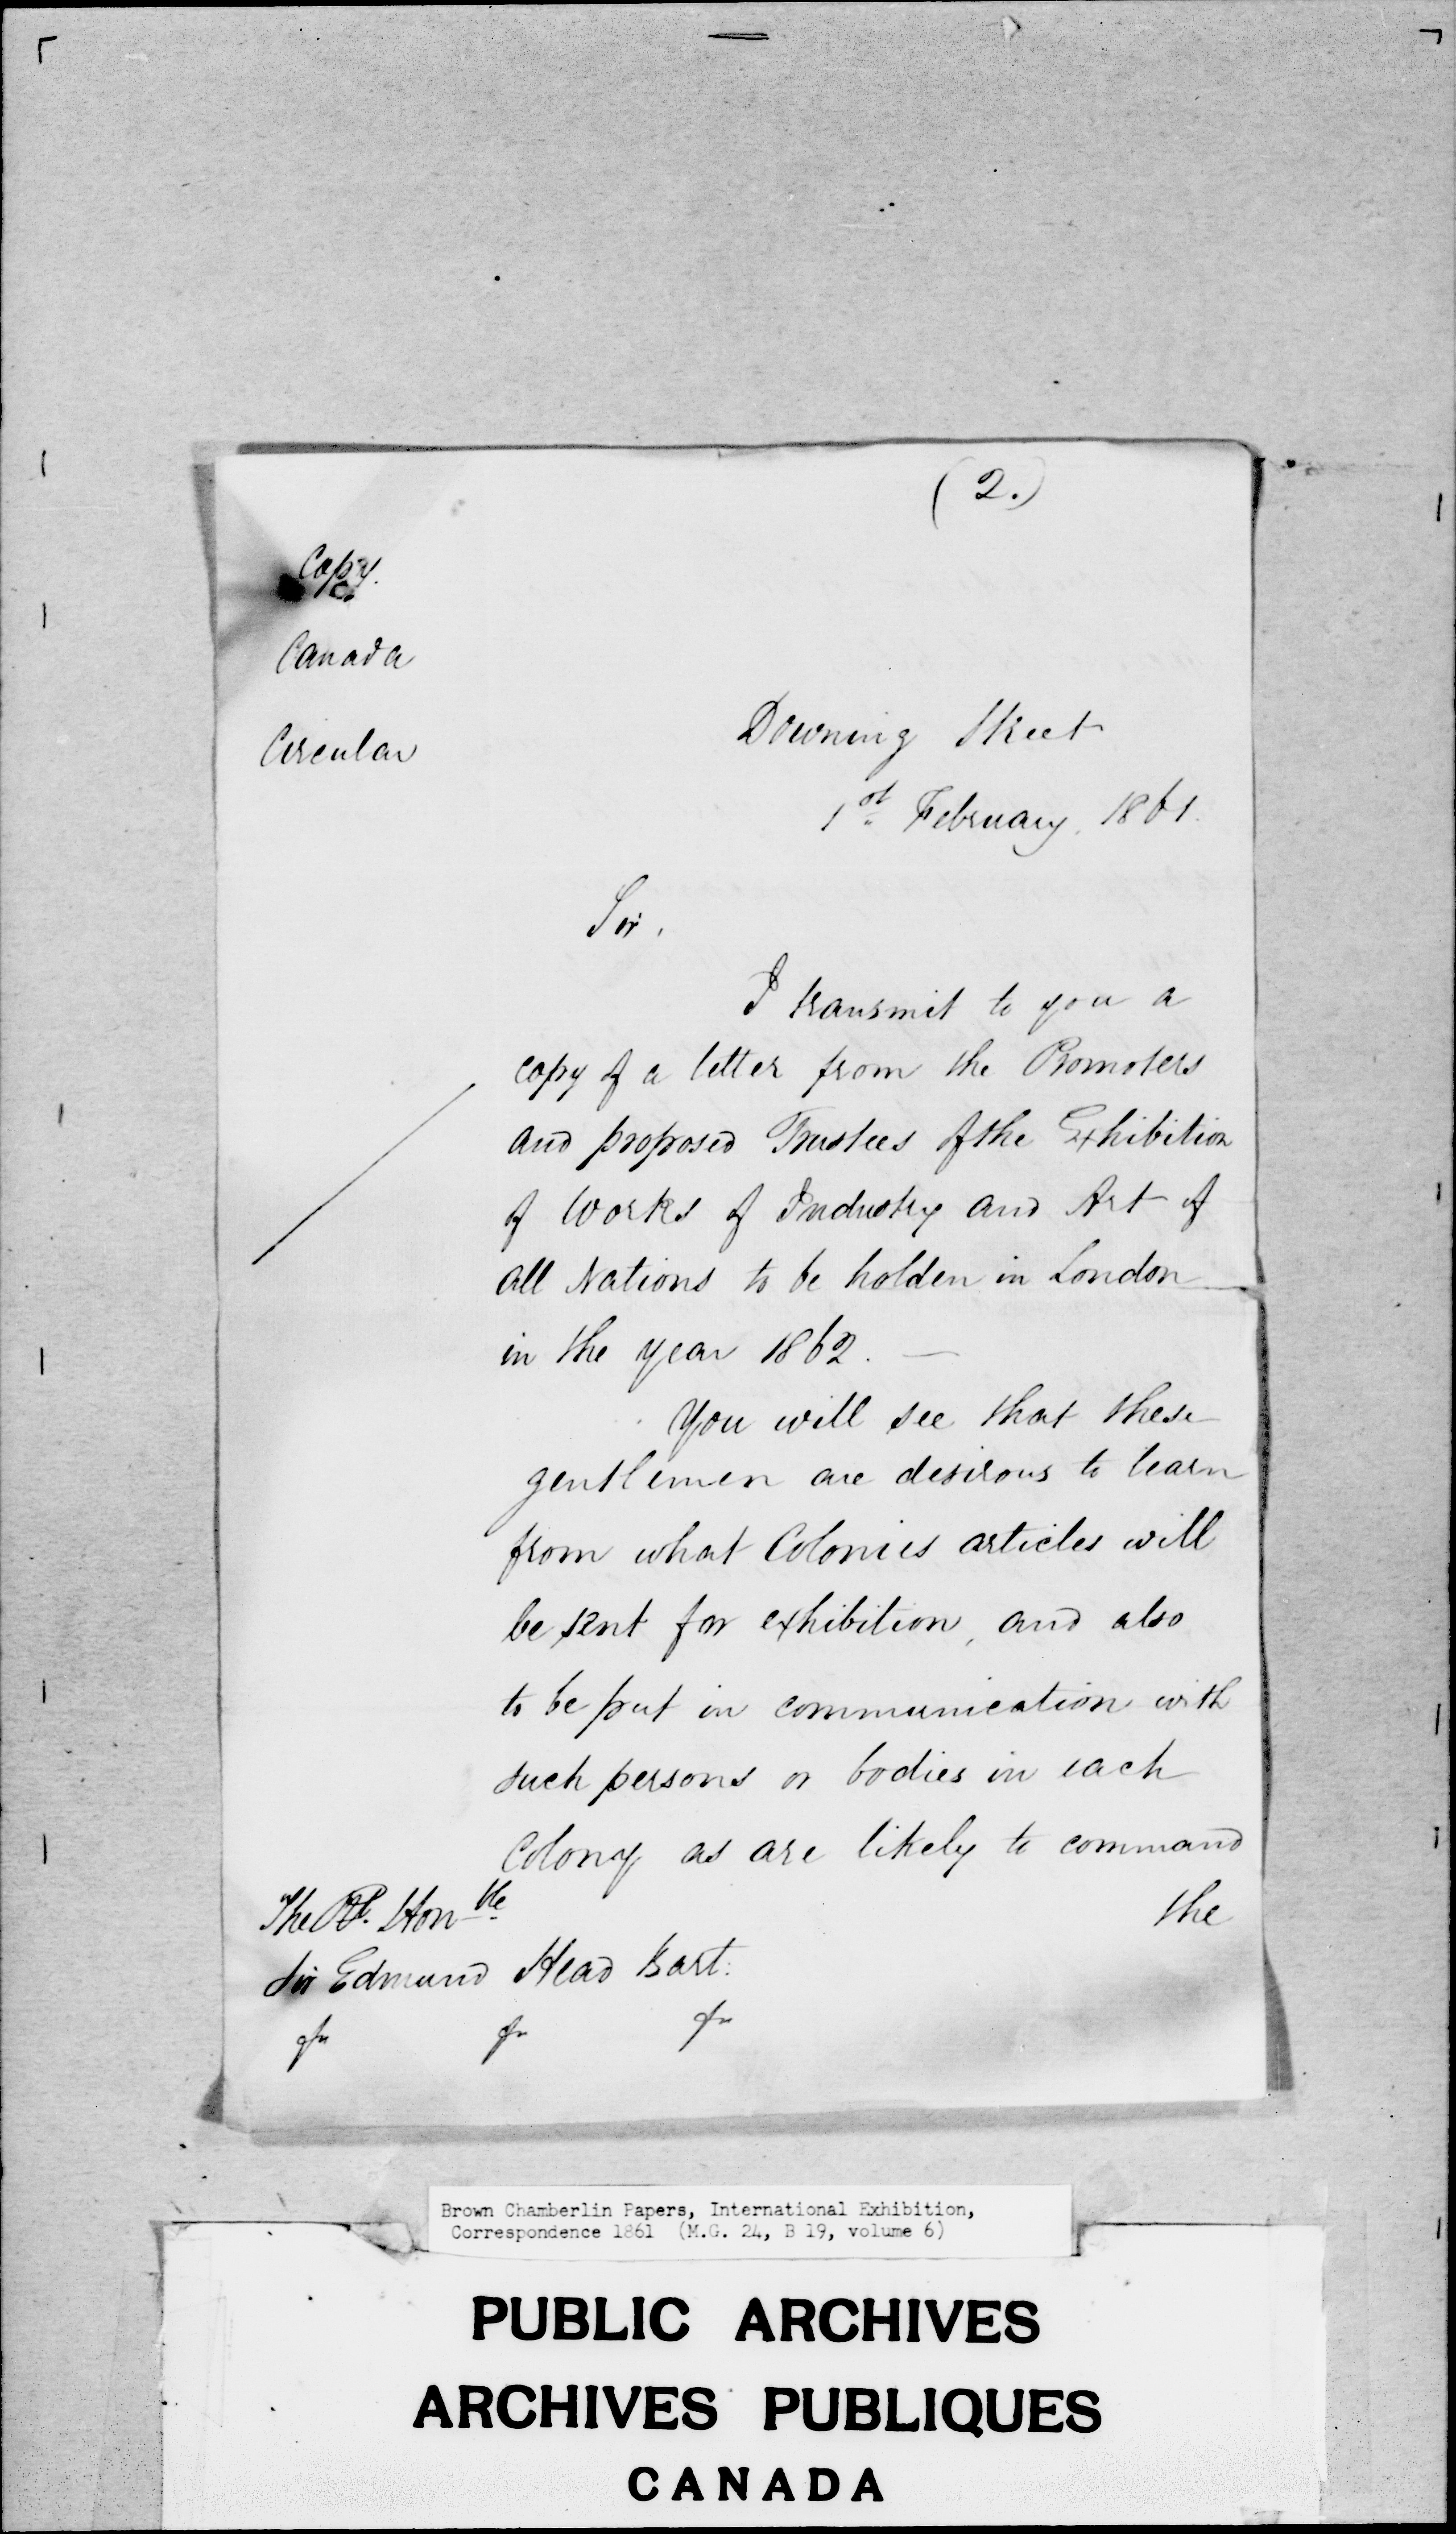 (2.)
Copy.
Canada
Circular
Downing Street
1st February, 1861.
Sir,
I transmit to you a
copy of a letter from the Promoters
and proposed Trustees of the Exhibition
of Works of Industry and Art of
all Nations to be holden in London
in the year 1862. —
You will see that these
gentlemen are desirous to learn
from what Colonies articles will
be sent for exhibition, and also
to be put in communication with
such persons or bodies in each
Colony as are likely to command
the
The Rt. Honble
Sir Edmund Head Bart:
Brown Chamberlin Papers, International Exhibition,
Correspondence 1861 (M.G. 24, B 19, volume 6)
PUBLIC ARCHIVES
ARCHIVES PUBLIQUES
CANADA